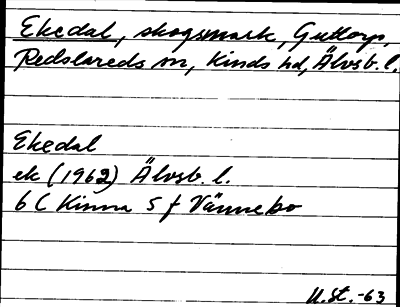 Ekedal, skogsmark, Guttorp,
Redslareds sn, Kinds hd, Älvsb. l.
Ekedal
ek (1962) Älvsb. l.
6 C Kinna 5 f Vännebo
U.St.-63